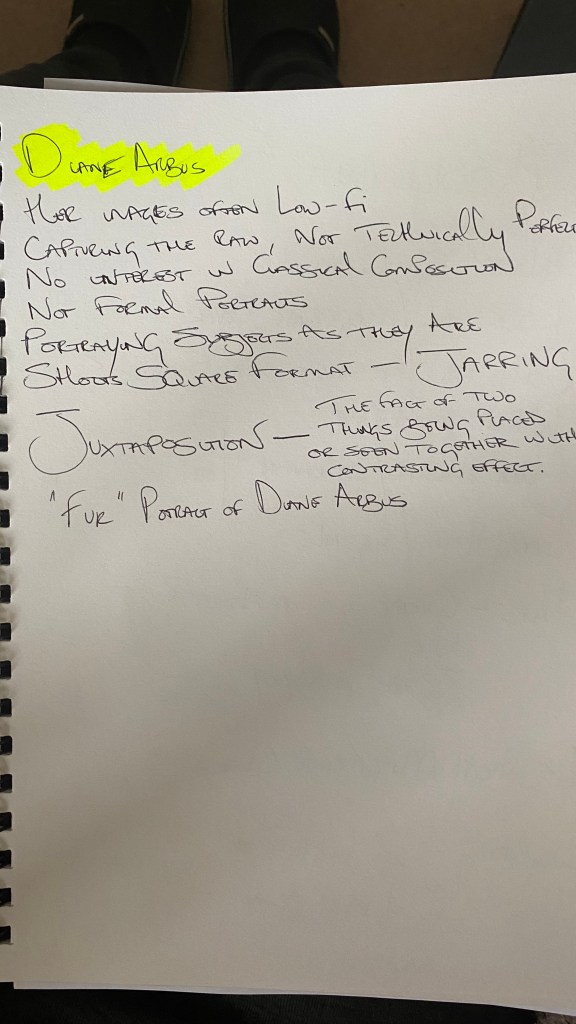 DIANE ARBUS
HER IMAGES OFTEN LOW-Fi
CAPTURING THE RAW, NOT TECHNICALLY PERFECT
NO INTEREST IN CLASSICAL COMPOSITION
NOT FORMAL PORTRAITS
PORTRAYING SUBJECTS AS THEY ARE
SHOOTS SQUARE FORMAT — JARRING
JUXTAPOSITION — THE FACT OF TWO
THINGS BEING PLACED
OR SEEN TOGETHER WITH
CONTRASTING EFFECT.
"FUR" POTRAIT OF DIANE ARBUS